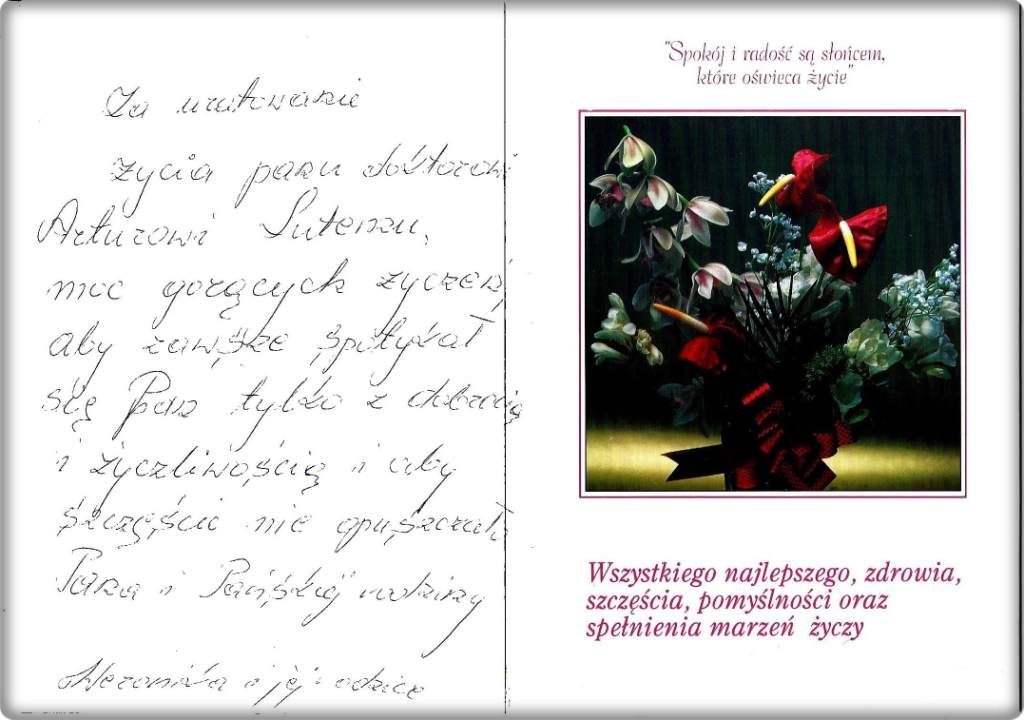 Za uratowanie
życia panu doktorowi
Arturowi
moc gorących życzeń,
aby zawsze spotykał
się Pan tylko z dobrocią
i życzliwością i aby
szczęście nie opuszczało
Pana i Pańskiej rodziny
Weronika i jej rodzice
"Spokój i radość są słońcem,
które oświeca życie"
Wszystkiego najlepszego, zdrowia,
szczęścia, pomyślności oraz
spełnienia marzeń życzy